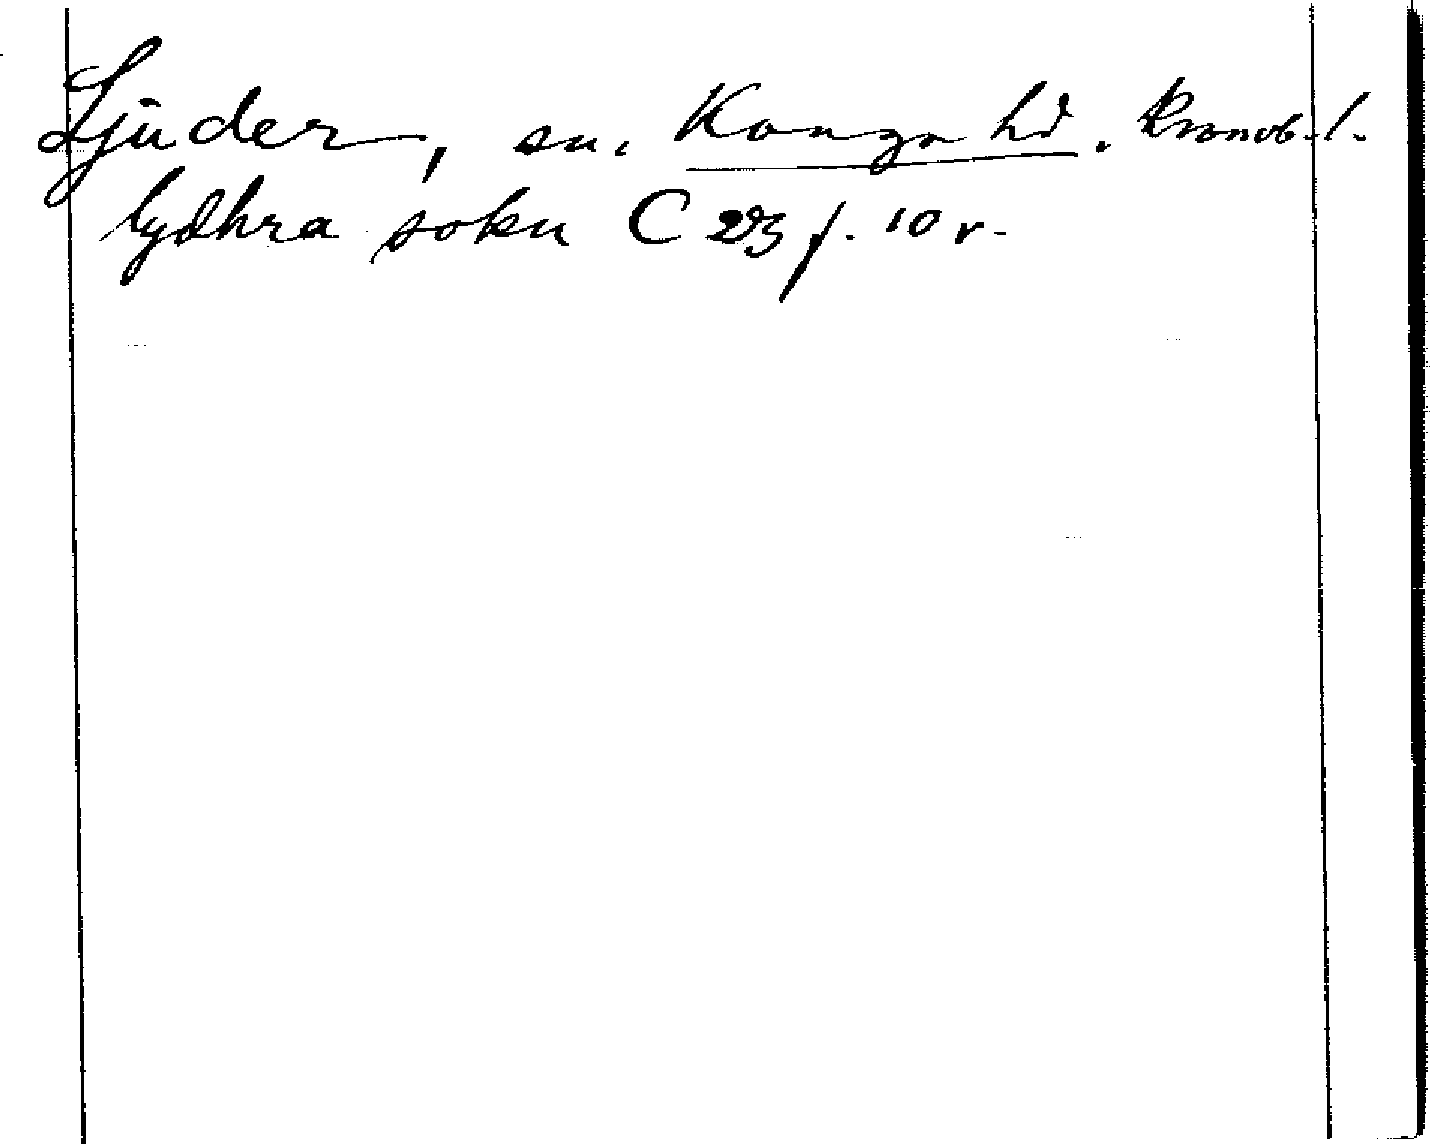 Ljuder, sn. Konga hd. Kronob. l.
lydhra sokn C 23 f. 10 r.